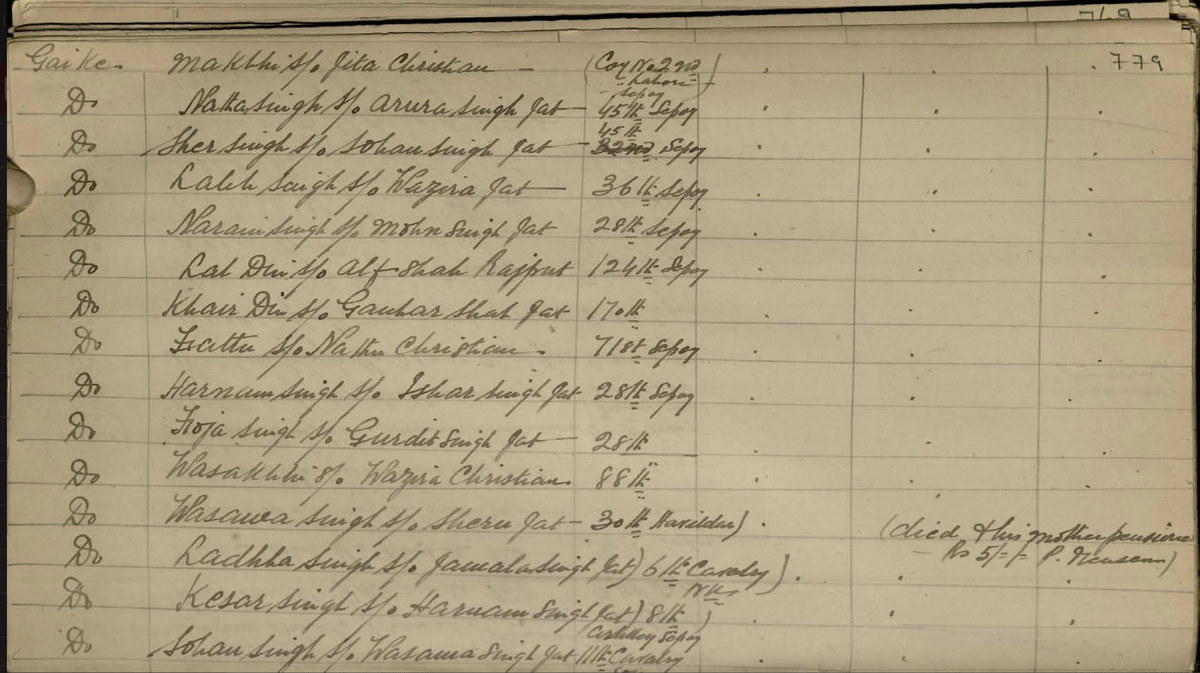 769
779
Gaike Makkhi s/o Jita Christian — (Coy No 2nd)
Lahore
Sepoy
Do Nattha Singh s/o Arura Singh Jat — 45th Sepoy
45th
Do Sher Singh s/o Sohan Singh Jat — 32nd Sepoy
Do Labh Singh s/o Wazira Jat — 36th Sepoy
Do Narain Singh s/o Mohn Singh Jat 28th Sepoy
Do Lal Din s/o Alf Shah Rajput 124th Sepoy
Do Khair Din s/o Gauhar Shah Jat 170th
Do Fattu s/o Nathu Christian 71st Sepoy
Do Harnam Singh s/o Ishar Singh Jat 28th Sepoy
Do Foja Singh s/o Gurdit Singh Jat — 28th
Do Wasakhi s/o Wazira Christian 88th
Do Wasawa Singh s/o Sheru Jat — 30th Havildar)
(died, & his mother pensione
Rs 5/-/- P.
Do Ladhha Singh s/o Jamala Singh Jat) 6th Cavalry)
Do Kesar Singh s/o Harnam Singh Jat) 8th)
Artillery Sepoy
Do Sohan Singh s/o Wasawa Singh Jat 11th Cavalry